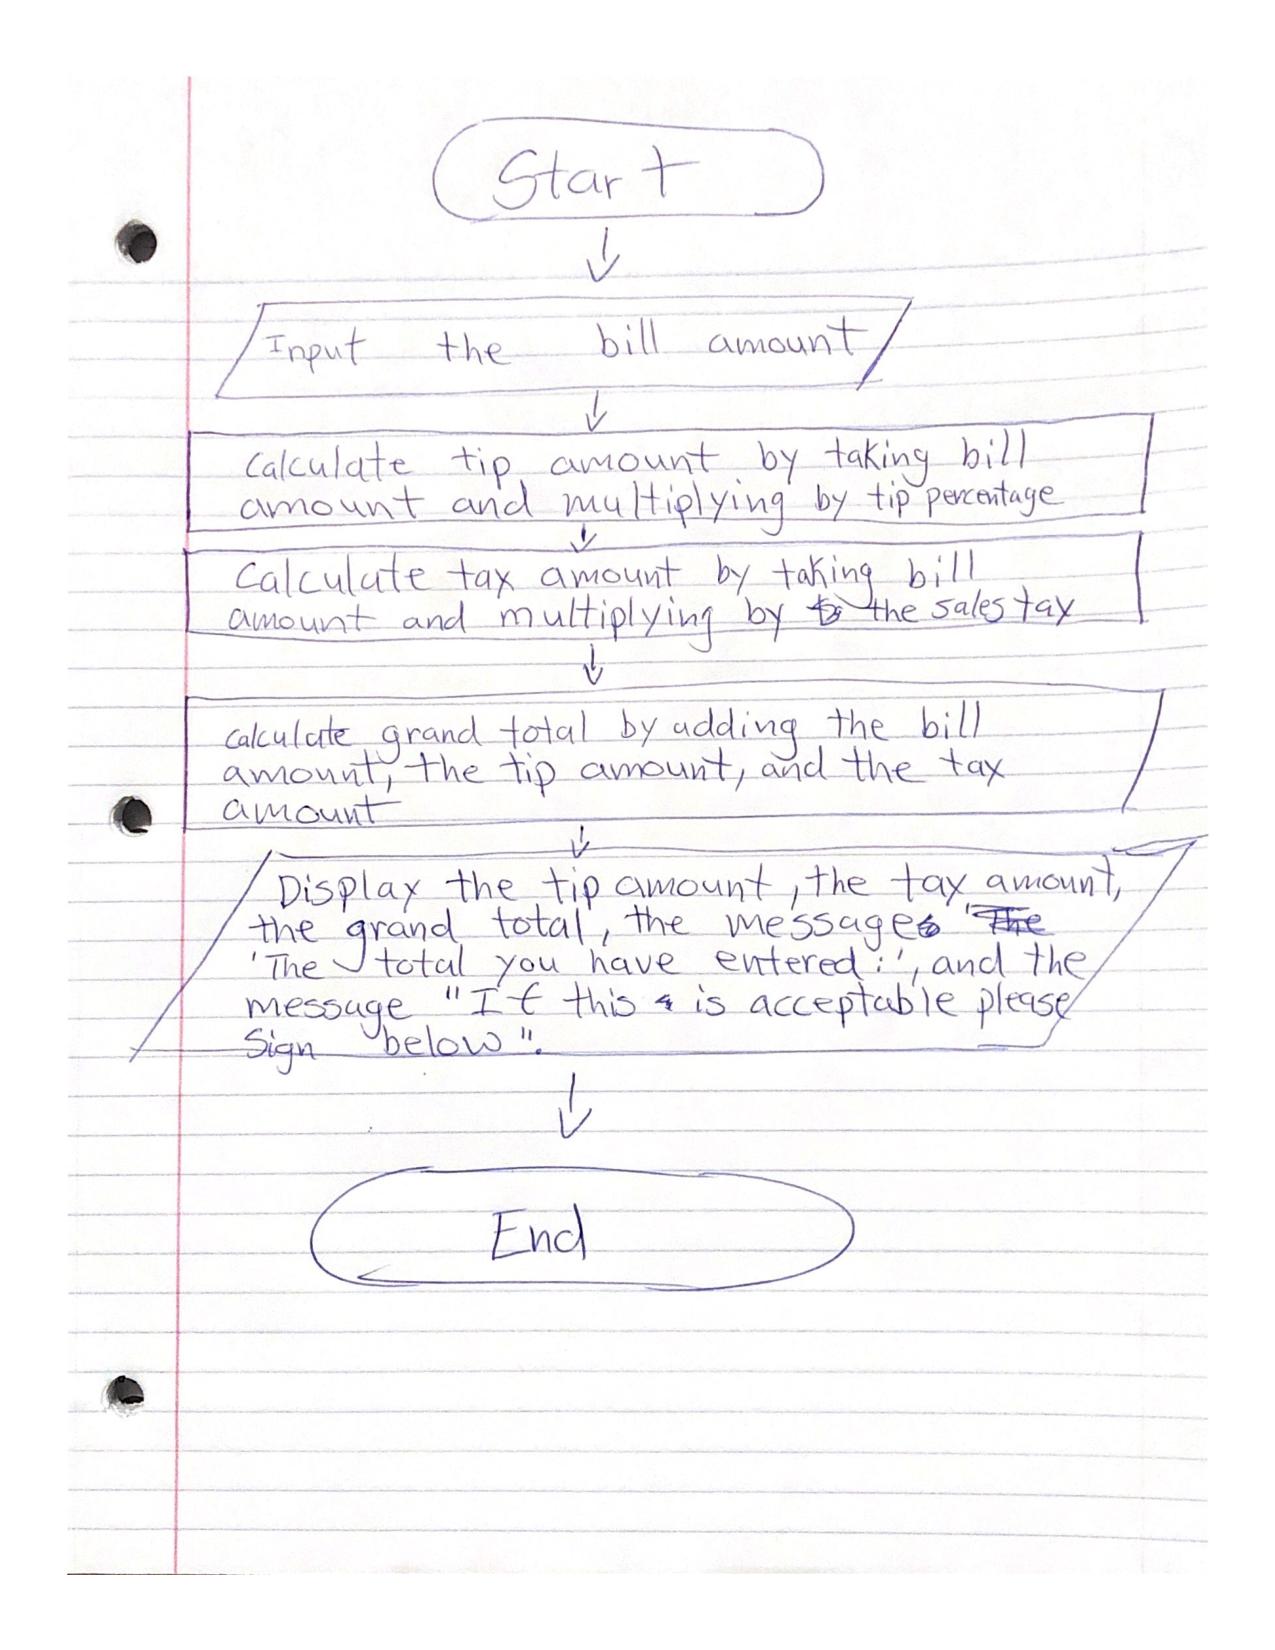 Start
Input the bill amount
Calculate tip amount by taking bill
amount and multiplying by tip percentage
Calculate tax amount by taking bill
amount and multiplying by the sales tax
calculate grand total by adding the bill
amount, the tip amount, and the tax
amount
Display the tip amount, the tax amount,
the grand total, the message "The
'The total you have entered:', and the
message "If this is acceptable please
Sign below".
End